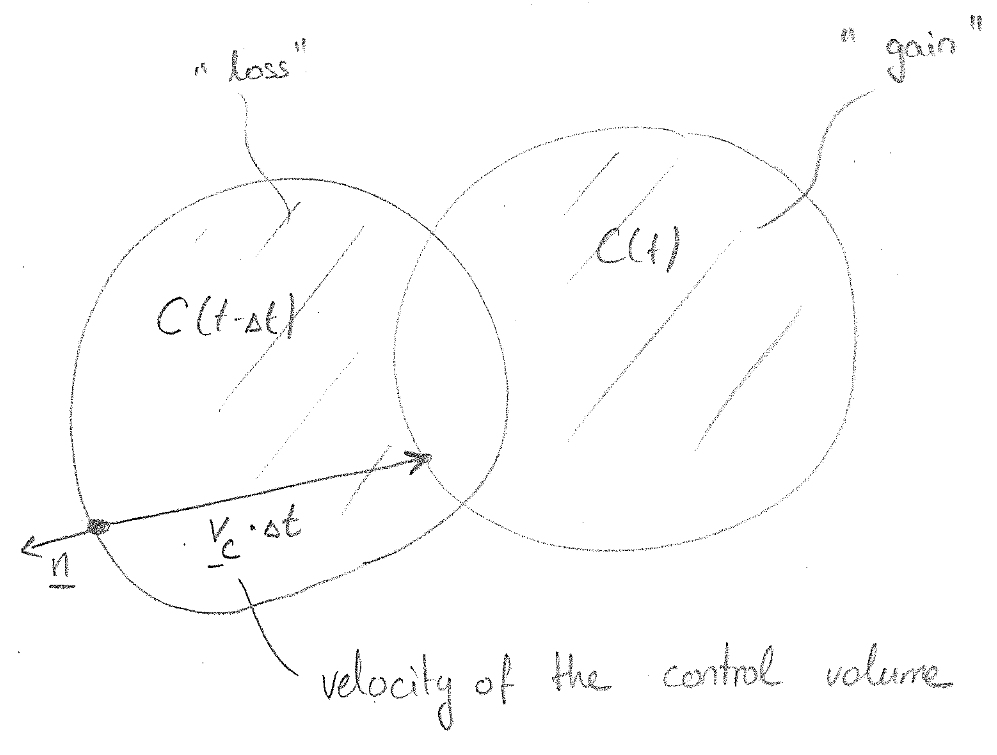 " loss"
" gain"
C(t-Δt)
C(t)
v_c · Δt
n
velocity of the control volume